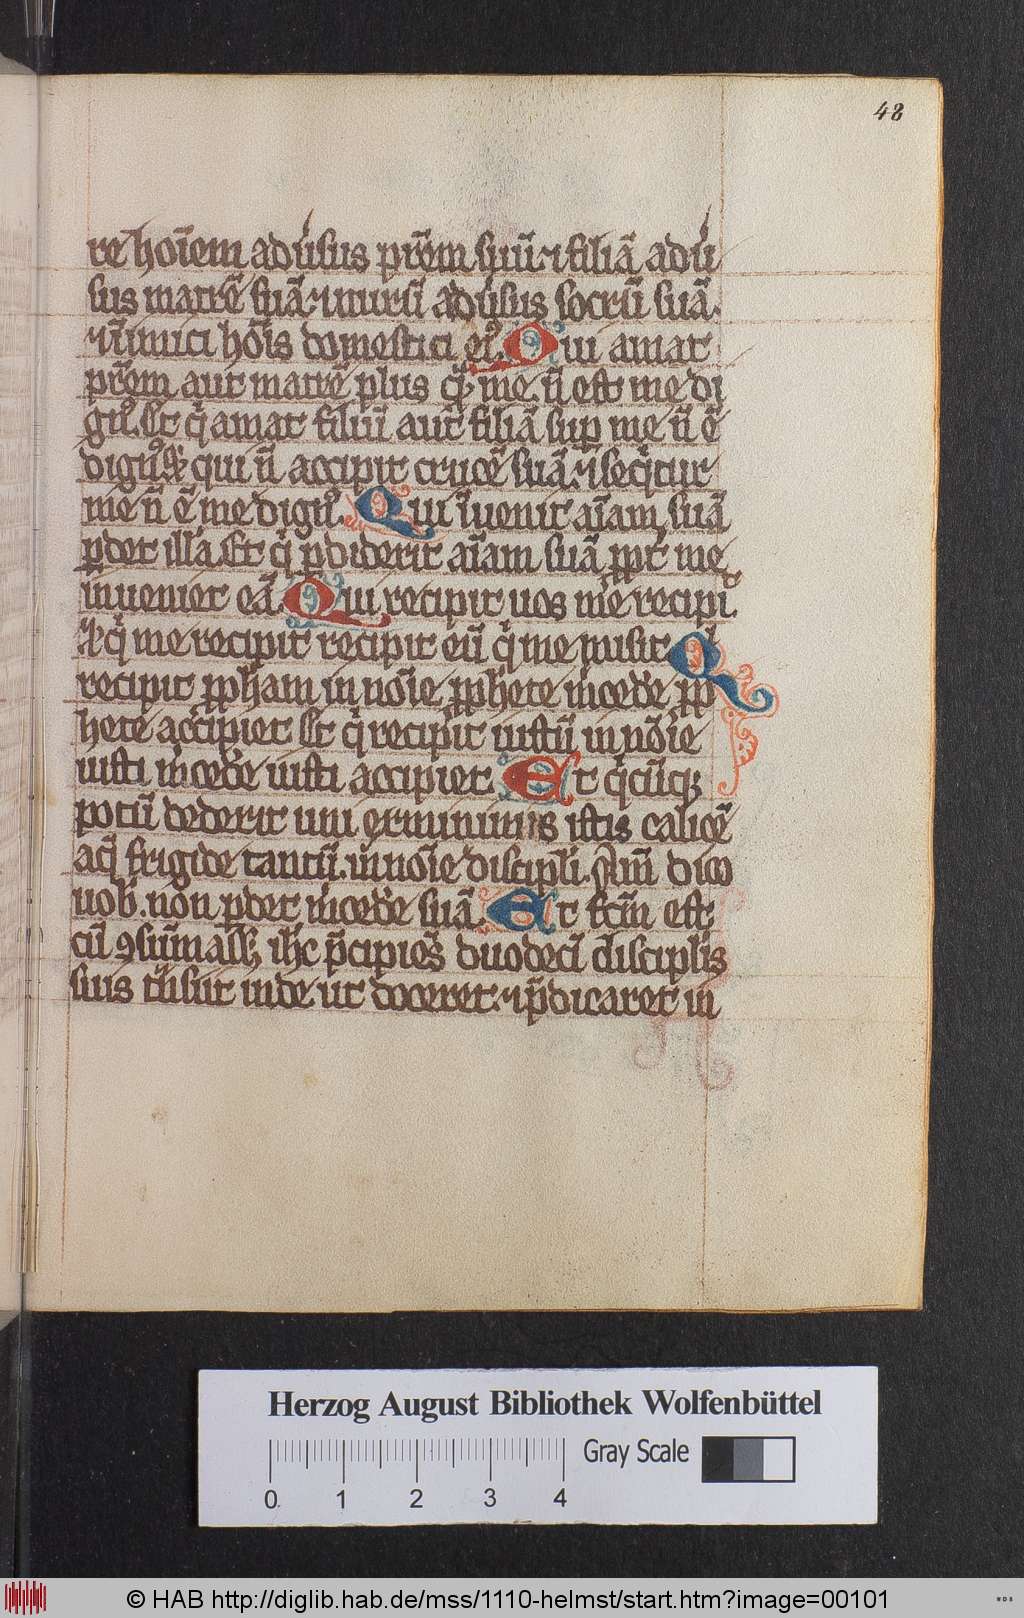 48
re hoīem adūsus pr̄em suū ⁊ filiā adū
sus matrē suā ⁊ nurū adūsus socrū suā.
⁊ inimici hōis domestici eiꝰ. Qui amat
pr̄em aut matrē plus q̄ me. n̄ est me di
gnꝰ. Et q̇ amat filiū aut filiā suꝑ me n̄ ē
dignꝰ qui n̄ accipit crucē suā ⁊ seq̇tur
me n̄ ē me dignꝰ. Qui īuenit aīam suā
ꝑdet illā. Et q̇ ꝑdiderit aīam suā ꝓpt̄ me
inueniet eā. Qui recipit uos me recipit
⁊ q̇ me recipit recipit eū q̇ me misit. Q̇
recipit ꝓpham in noīe ꝓphete m̄cedē ꝓp
hete accipiet. Et q̇ recipit iustū in noīe
iusti m̄cedē iusti accipiet. Et q̇cūqꝫ
potū dederit uni ex minimis istis calicē
aq̄ frigide tantū. in noīe discipli. Am̄ dico
uob̄. non ꝑdet m̄cedē suā. Et fc̄m est
cū ꝯsūmassꝫ ih̄c p̄cipiēs duodecī discipl̄is
suis t̄nsiit inde ut doceret ⁊ p̄dicaret in
Herzog August Bibliothek Wolfenbüttel
Gray Scale
0 1 2 3 4
© HAB http://diglib.hab.de/mss/1110-helmst/start.htm?image=00101